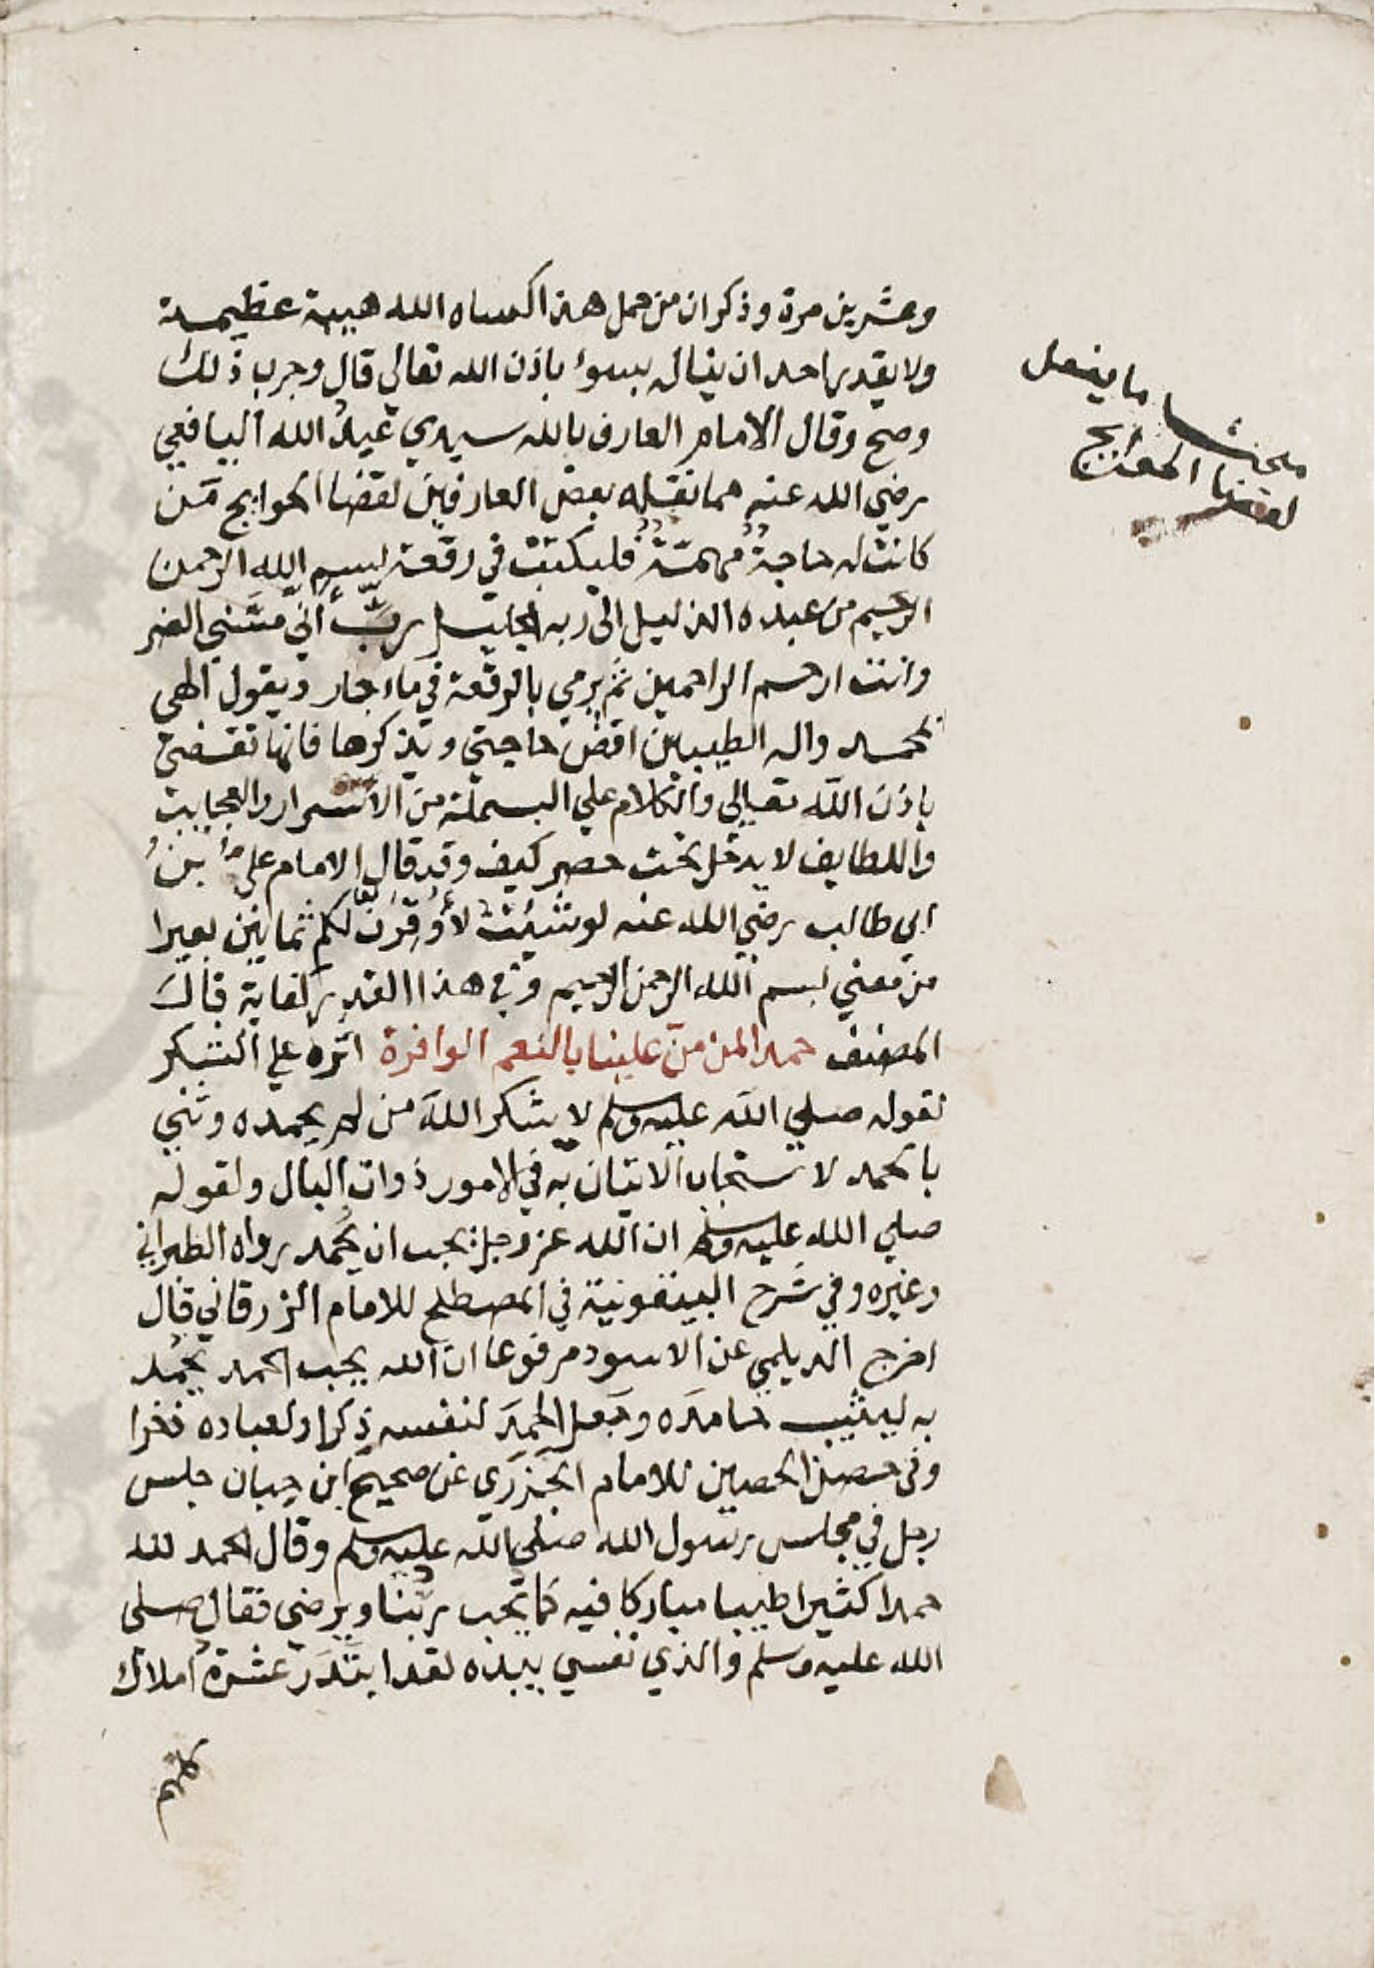 وعشرين مرة وذكر ان من حمل هذا اكساه الله هيبة عظيمة
ولا يقدر احد ان يناله بسوء باذن الله تعالي قال وجرب ذلك
وصح وقال الامام العارف بالله سيدي عبد الله اليافعي
رضي الله عنه مما نقله بعض العارفين لقضا الحوايج من
كانت له حاجة مهمة فليكتب في رقعة بسم الله الرحمن
الرحيم من عبده الذليل الي ربه الجليل رب اني مسني الضر
وانت ارحم الراحمين ثم يرمي بالرقعة في ماء جار ويقول الهي
بمحمد واله الطيبين اقض حاجتي ويذكرها فانها تقضي
باذن الله تعالي والكلام علي البسملة من الاسرار والعجايب
واللطايف لا يدخل تحت حصر كيف وقد قال الامام علي بن
ابي طالب رضي الله عنه لو شيت لاوقرن لكم ثمانين بعيرا
من معني بسم الله الرحمن الرحيم وفي هذا القدر كفاية قال
المصنف حمدا لمن من علينا بالنعم الوافرة اثره علي الشكر
لقوله صلي الله عليه وسلم لا يشكر الله من لم يحمده وثني
بالحمد لاستحباب الاتيان به في الامور ذوات البال ولقوله
صلي الله عليه وسلم ان الله عز وجل يحب ان يحمد رواه الطبراني
وغيره وفي شرح البيقونية في المصطلح للامام الزرقاني قال
اخرج الديلمي عن الاسود مرفوعا ان الله يحب الحمد يحمد
به ليثيب حامده وجعل الحمد لنفسه ذكرا ولعباده ذخرا
وفي حصن الحصين للامام الجزري عن صحيح ابن حبان جلس
رجل في مجلس رسول الله صلي الله عليه وسلم وقال الحمد لله
حمدا كثيرا طيبا مباركا فيه كما يحب ربنا ويرضي فقال صلي
الله عليه وسلم والذي نفسي بيده لقد ابتدر عشرة املاك
كلهم
ما يفعل
لقضا الحوايج